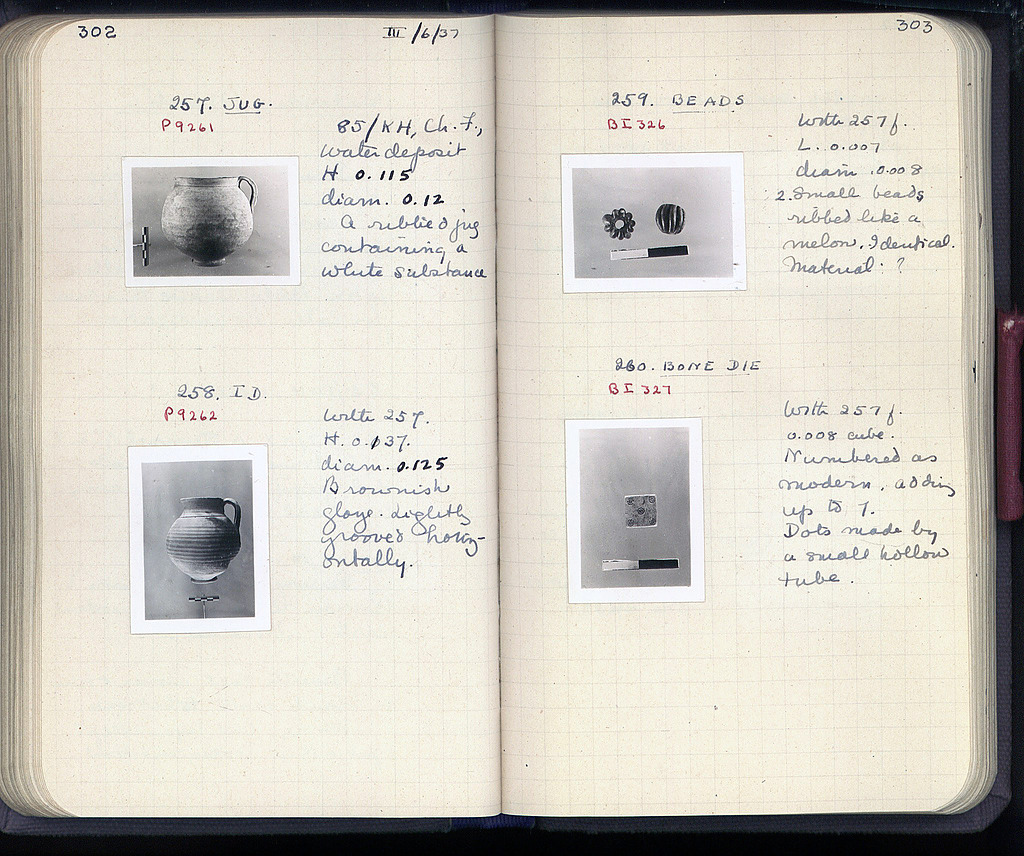 302
III/6/37
257. JUG.
P 9261
85/KH, Ch. F.,
water deposit
H 0.115
diam. 0.12
A ribbed jug
containing a
white substance
258. ID.
P 9262
With 257.
H. 0.137.
diam. 0.125
Brownish
glaze. Slightly
grooved horiz-
ontally.
303
259. BEADS
BI 326
With 257 f.
L. 0.007
diam. 0.008
2. Small beads
ribbed like a
melon. Identical.
Material: ?
260. BONE DIE
BI 327
With 257 f.
0.008 cube.
Numbered as
modern, adding
up to 7.
Dots made by
a small hollow
tube.